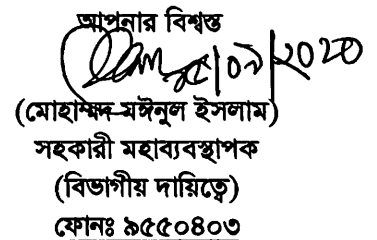 আপনার বিশ্বস্ত
(মোহাম্মদ মঈনুল ইসলাম)
সহকারী মহাব্যবস্থাপক
(বিভাগীয় দায়িত্বে)
ফোনঃ ৯৫৫০৪০৩